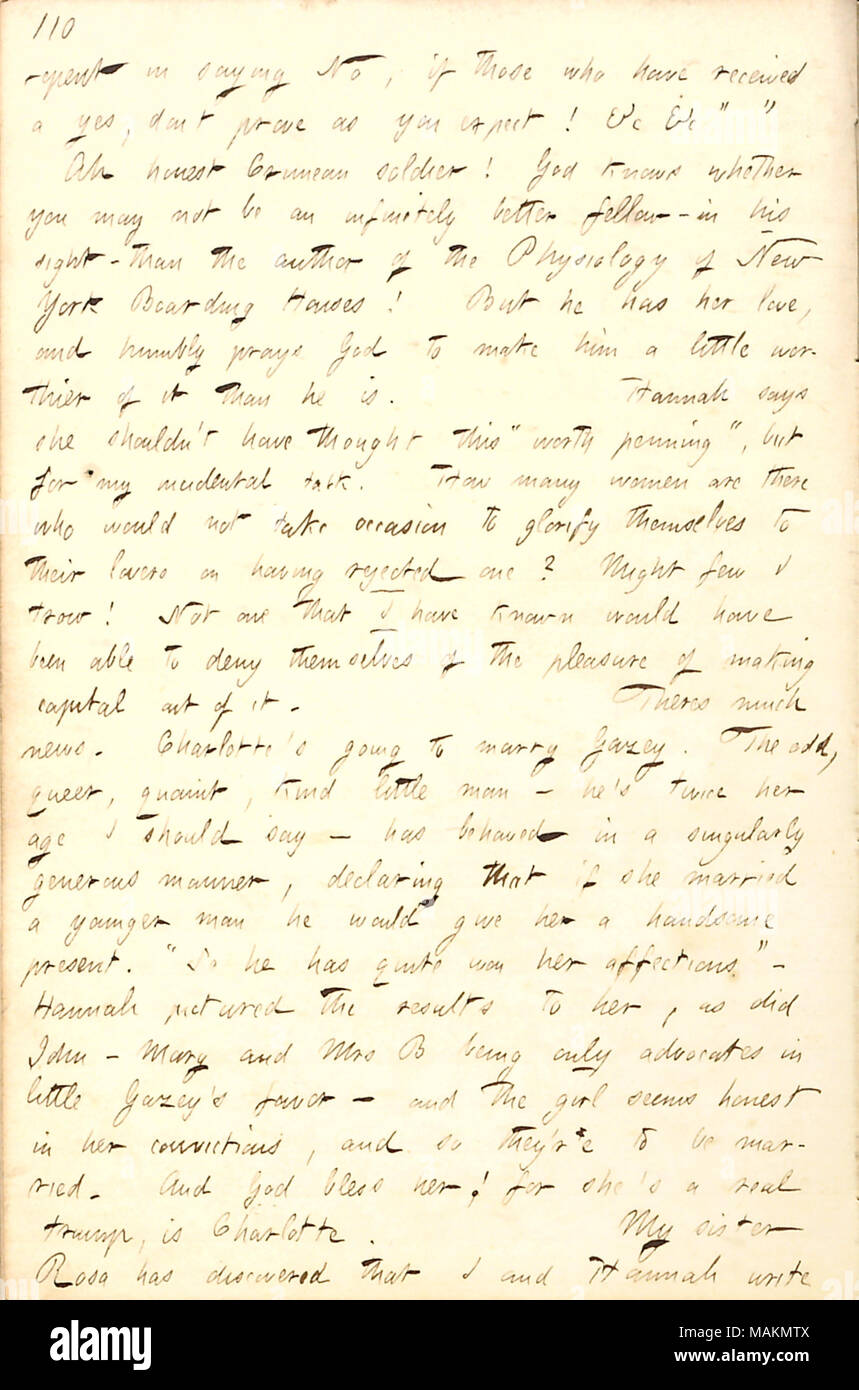 110
repent in saying No, if those who have received
a yes, don't prove as you expect! &c &c " "
Ah honest Crimean soldier! God knows whether
you may not be an infinitely better fellow - in his
sight - than the author of the Physiology of New
York Boarding Houses! But he has her love,
and humbly prays God to make him a little wor-
thier of it than he is. Hannah says
she shouldn't have thought this "worth penning", but
for my incidental talk. How many women are there
who would not take occasion to glorify themselves to
their lovers on having rejected one? Might few I
trow! Not one that I have known would have
been able to deny themselves of the pleasure of making
capital out of it. Theres much
news. Charlotte's going to marry Gazey. The odd,
queer, quaint, kind little man - he's twice her
age I should say - has behaved in a singularly
generous manner, declaring that if she married
a younger man he would give her a handsome
present. "So he has quite won her affections" -
Hannah pictured the results to her, as did
John - Mary and Mrs B being only advocates in
little Gazey's favor - and the girl seems honest
in her convictions, and so they'r'e to be mar-
ried. And God bless her! for she's a real
trump, is Charlotte. My sister
Rosa has discovered that I and Hannah write
alamy
Image ID: MAKMTX
www.alamy.com